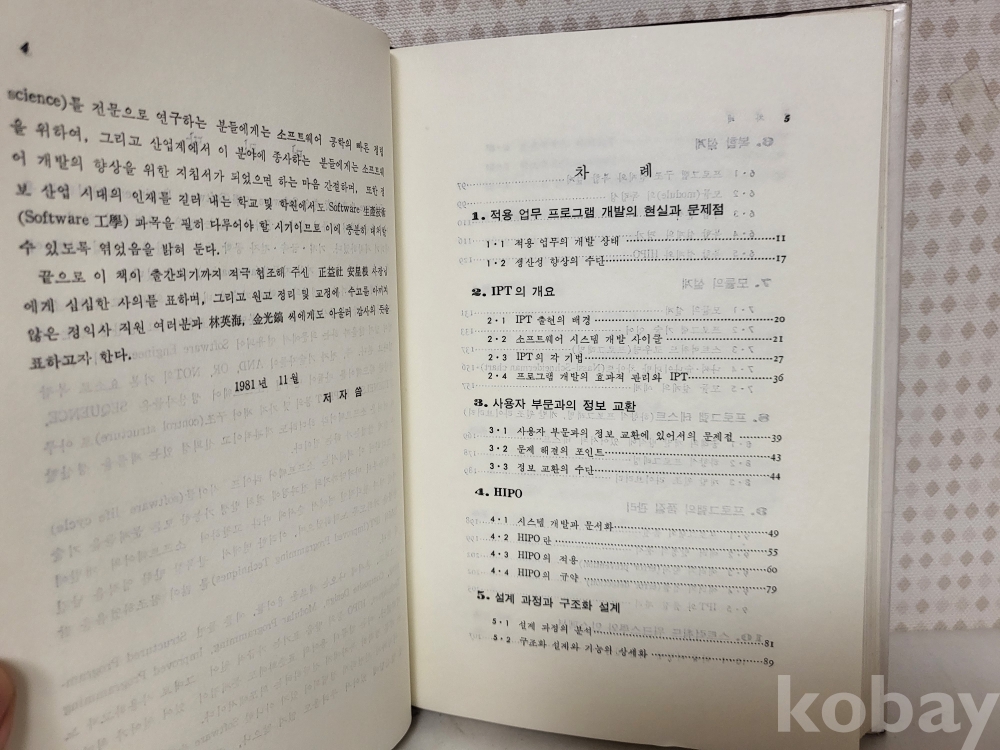 4
science)를 전문으로 연구하는 분들에게는 소프트웨어 공학의 빠른 정립
을 위하여, 그리고 산업계에서 이 분야에 종사하는 분들에게는 소프트웨
어 개발의 향상을 위한 지침서가 되었으면 하는 마음 간절하며, 또한 정
보 산업 시대의 인재를 길러 내는 학교 및 학원에서도 Software 生產技術
(Software 工學) 과목을 필히 다루어야 할 시기이므로 이에 충분히 대처할
수 있도록 엮었음을 밝혀 둔다.
끝으로 이 책이 출간되기까지 적극 협조해 주신 正益社 安星根 사장님
에게 심심한 사의를 표하며, 그리고 원고 정리 및 교정에 수고를 아끼지
않은 정익사 직원 여러분과 林英海, 金光鎬 씨에게도 아울러 감사의 뜻을
표하고자 한다.
1981년 11월
저 자 씀
5
차 례
1. 적용 업무 프로그램 개발의 현실과 문제점
1·1 적용 업무의 개발 상태 11
1·2 생산성 향상의 수단 17
2. IPT의 개요
2·1 IPT 출현의 배경 20
2·2 소프트웨어 시스템 개발 사이클 21
2·3 IPT의 각 기법 27
2·4 프로그램 개발의 효과적 관리와 IPT 36
3. 사용자 부문과의 정보 교환
3·1 사용자 부문과의 정보 교환에 있어서의 문제점 39
3·2 문제 해결의 포인트 43
3·3 정보 교환의 수단 44
4. HIPO
4·1 시스템 개발과 문서화 49
4·2 HIPO란 55
4·3 HIPO의 적용 60
4·4 HIPO의 규약 79
5. 설계 과정과 구조화 설계
5·1 설계 과정의 분석 81
5·2 구조화 설계와 기능의 상세화 89
kobay